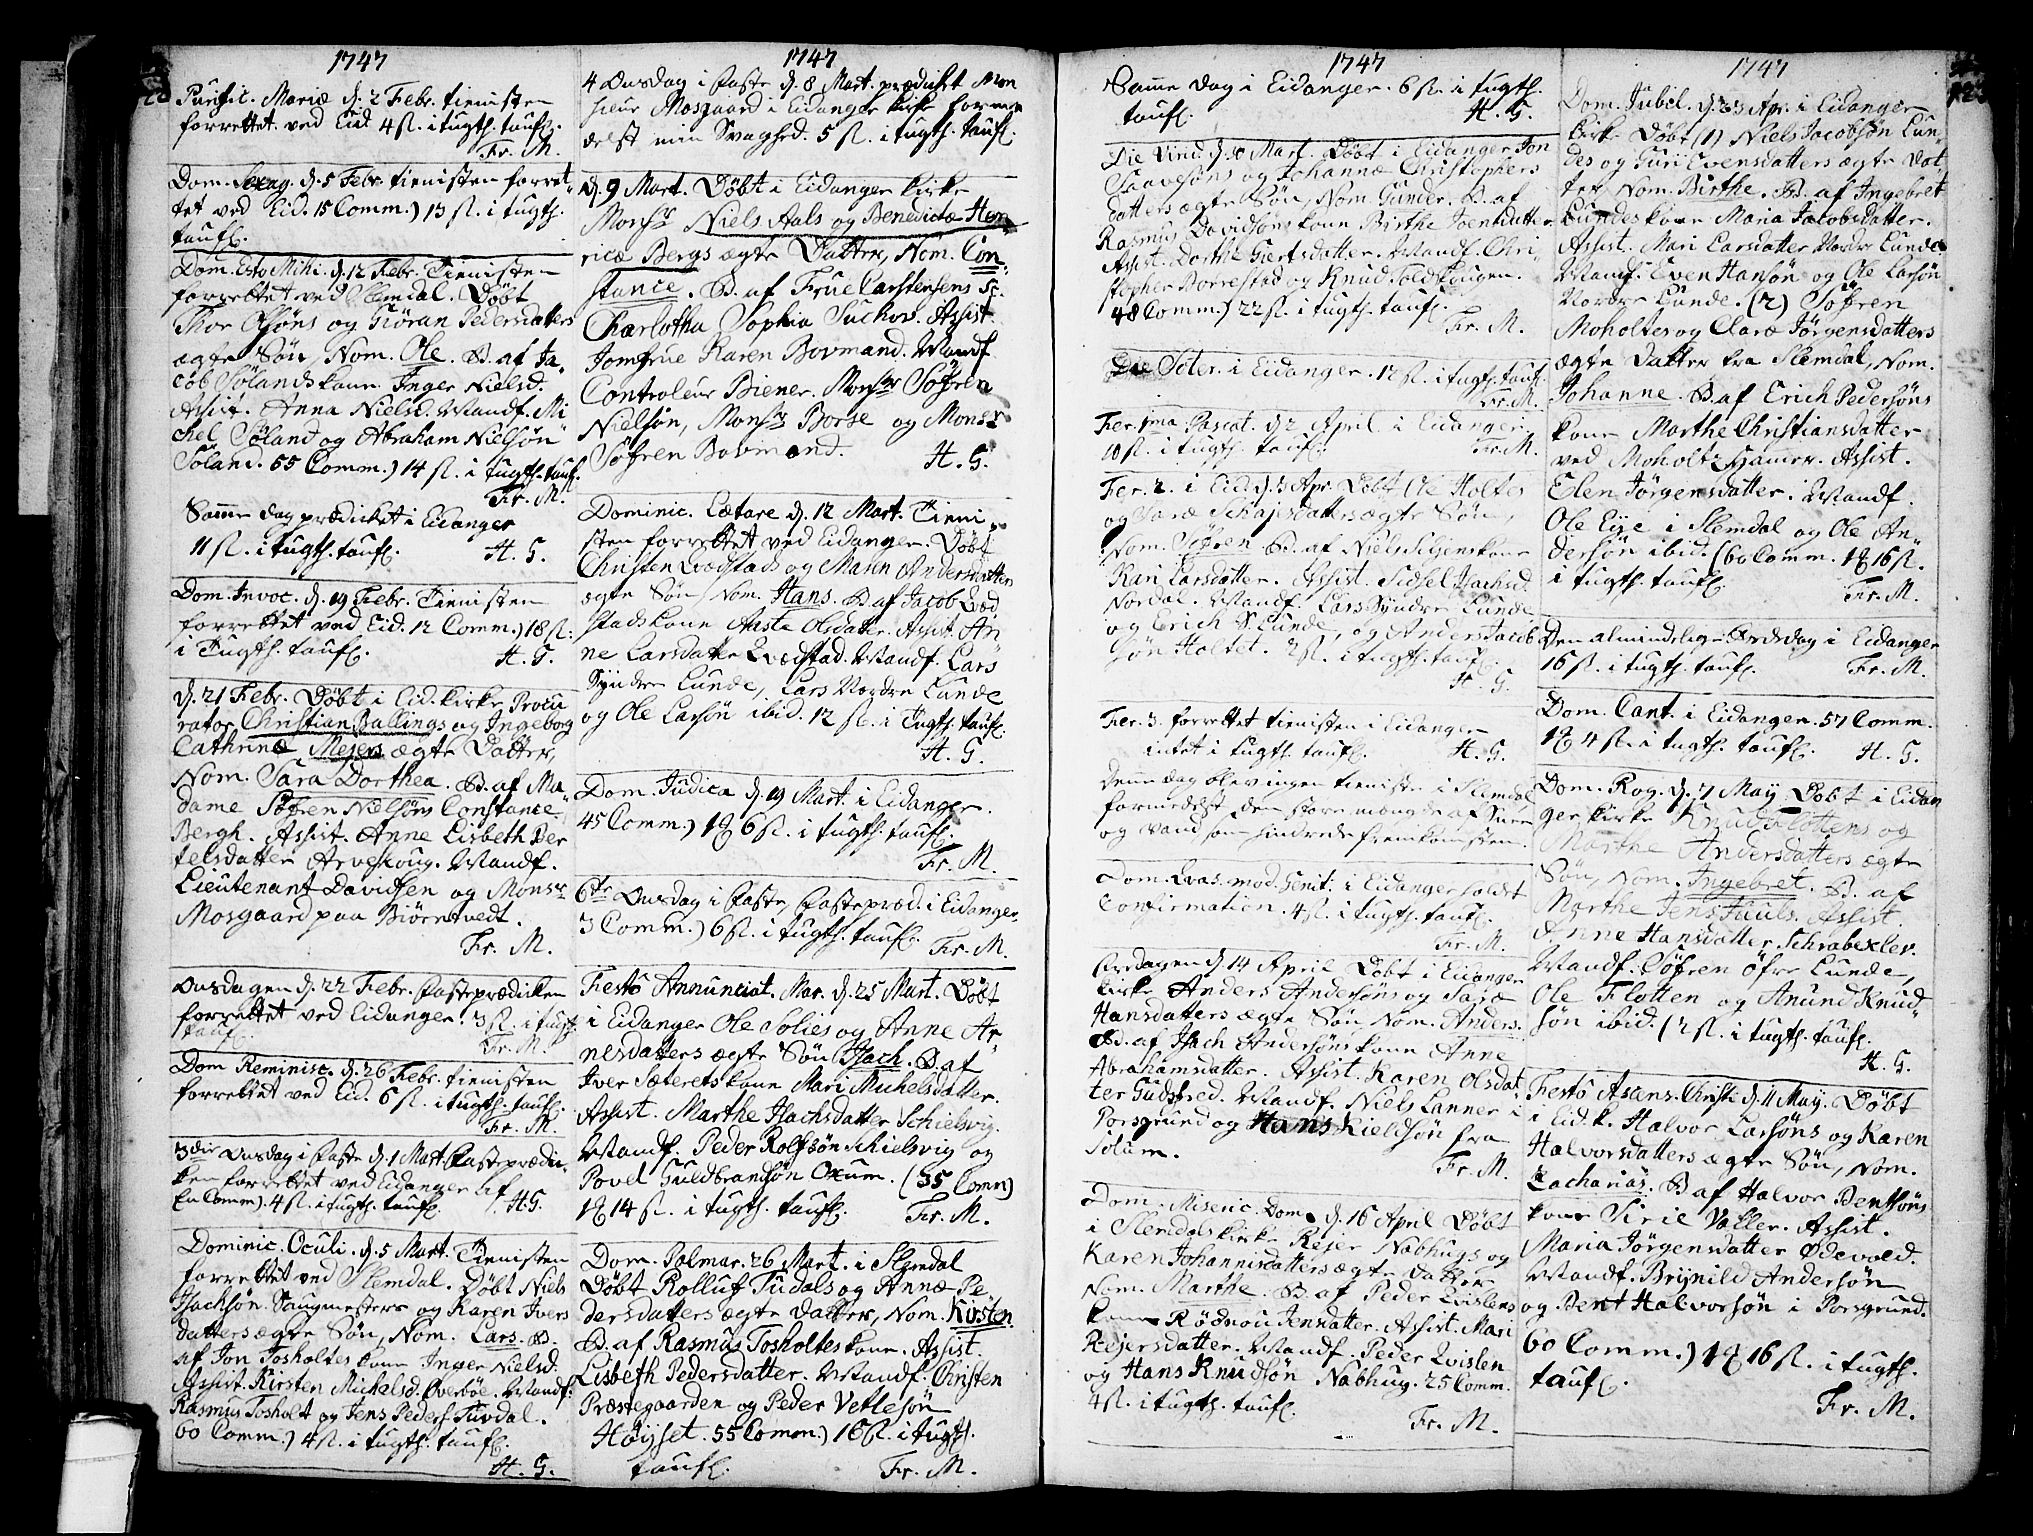 1747
Purific. Mariæ d. 2 Febr. tienisten
forrettet ved Eid 4 sl. i tugth. taufl.
Fr. M.
Dom. Sexag. d. 5 Febr. tienisten forret
tet ved Eid. 15 Comm.) 13 sl. i tugth.
taufl.
Dom. Esto Mihi. d. 12 Febr. Tienisten
forrettet ved Slemdal. Döbt
Thor Olsöns og Giöran Pedersdatters
ægte Sön, Nom. Ole. B. af Ja„
cob Sölands kone Inger Nielsd.
Assist. Anna Nielsd. Mandf. Mi
chel Söland og Abraham Nielsön
Söland. 55 Comm.) 14 sl. i tugth. taufl.
Fr. M.
Samme dag prædicket i Eidanger
11 sl. i tugth. taufl. H. G.
Dom. Invoc. d. 19 Febr. Tienisten
forrettet ved Eid. 12 Comm.) 18 sl.
i Tugth. taufl. H. G.
d. 21 Febr. Döbt i Eid. kirke Procu
rator Christian Ballings og Ingeborg
Cathrinæ Mejers ægte Datter,
Nom. Sara Dorthea. B. af Ma
dame Söfren Nielsöns Constance
Bergh. Assist. Anne Lisbeth Ber
telsdatter Arveskoug. Mandf.
Lieutenant Davidsen og Monsr
Mosgaard paa Biörntvedt.
Fr. M.
Onsdagen d. 22 Febr. fasteprædicken
forrettet ved Eidanger. 3 sl. i tugth.
taufl. Fr. M.
Dom Reminisc. d. 26 Febr. tienisten
forrettet ved Eid. 6 sl. i tugth. taufl.
Fr. M.
3die Onsdag i faste d. 1 Mart. fasteprædic
ken forrettet ved Eidanger
En Comm). 4 sl. i tugth. taufl. H. G.
Dominic. Oculi. d. 5 Mart. Tienisten
forrettet ved Slemdal. Döbt Niels
Isachsön Saugmesters og Karen Ivers
datters ægte Sön, Nom. Lars. B.
af Jon Tosholtes kone Inger Nielsd.
Assist. Kirsten Michelsd. Överböe. Mandf.
Rasmus Tosholt og Jens Peders. Tuvdal.
60 Comm.) 4 sl. i tugth. taufl.
H. G.
1747
4 Onsdag i faste d. 8 Mart. prædicket Mon
sieur Mosgaard i Eidanger kirke forme
delst min Svaghed. 5 sl. i tugth. taufl.
d. 9 Mart. Döbt i Eidanger kirke
Monsr Niels Aals og Benedictæ Hen
ricæ Bergs ægte Datter, Nom. Con„
stance. B. af Frue Carstensens
Charlotha Sophia Suchov. Assist.
Jomfrue Karen Bovmand. Mandf.
Controleur Biener. Monsr Söfren
Nielsön, Monsr Borse og Monsr
Söfren Bovmand. H. G.
Dominic. Lætare d. 12 Mart. Tieni
sten forrettet ved Eidanger. Döbt
Christen Qvædstads og Maren Andersdatters
ægte Sön Nom. Hans. B. af Jacob Qvæd
stads kone Anste Olsdatter. Assist. An
ne Larsdatter Qvædstad. Mandf. Lars
Syndre Lunde, Lars Nordre Lunde
og Ole Larsön ibid. 12 sl. i Tugth. taufl.
H. G.
Dom. Judica d. 19 Mart. i Eidanger.
45 Comm.) 1 6 sl. i tugth. taufl.
Fr. M.
6te Onsdag i faste, fastepræd. i Eidanger.
3 Comm.) 6 sl. i tugth. taufl.
Fr. M.
Festo Annunciat. Mar. d. 25 Mart. Döbt
i Eidanger Ole Solies og Anne Ar„
nesdatters ægte Sön Isach. B. af
Iver Sæterets kone Mari Michelsdatter.
Assist. Marthe Isachsdatter Schielsvig.
Mandf. Peder Rolfsön Schielsvig og
Povel Guldbrandsön Oxum. (35 Comm)
1 14 sl. i tugth. taufl. Fr. M.
Dom. Palmar. 26 Mart. i Slemdal
Döbt Rolluf Tudals og Annæ Pe„
dersdatters ægte datter, Nom. Kirsten.
B. af Rasmus Tosholtes kone. Assist.
Lisbeth Pedersdatter. Mandf. Christen
Præstegaarden og Peder Vetlesön
Höyset. 55 Comm.) 16 sl. i tugth.
taufl. Fr. M.
1747
Samme dag i Eidanger. 6 sl. i tugth.
taufl. H. G.
Die Virid. d. 30 Mart. Döbt i Eidanger Jon
Saavesöns og Johannæ Christophers
datters ægte Sön, Nom. Gunder. B. af
Rasmus Davidsöns kone Birthe Joensdatter.
Assist. Dorthe Giertsdatter. Mandf. Chri„
stopher Norrestad og Knud Toldskougen.
48 Comm.) 22 sl. i tugth. taufl.
Fr. M.
Die Seter. i Eidanger. 12 sl. i tugth. taufl.
Fr. M.
Fer. 1ma Pascat. d. 2 April i Eidanger.
10 sl. i tugth. taufl. Fr. M.
Fer. 2. i Eid. d. 3 Apr. Döbt Ole Holtes
og Saræ datters ægte Sön,
Nom. Söfren. B. af Niels kone
Kari Larsdatter. Assist. Sidsel Isachsd.
Nordal. Mandf. Lars Syndre Lunde
og Erich S. Lunde, og Anders Jacob
sön Holtet. 2 sl. i tugth. taufl.
H. G.
Fer. 3. forrettet tienisten i Eidanger
intet i tugth. taufl. H. G.
Denne dag blev ingen tieniste i Slemdal
formedelst den store mængde af Snee
og vand som hindrede fremkomsten.
Dom. Qvas. mod. Genit. i Eidanger holdet
Confirmation. 4 sl. i tugth. taufl.
Fr. M.
Fredagen d. 14 April Döbt i Eidanger
kirke Anders Andersöns og Saræ
Hansdatters ægte Sön Nom. Anders.
B. af Isach Andersöns kone Anne
Abrahamsdatter. Assist. Karen Olsdat„
ter Gudsfred. Mandf. Niels Lanner i
Porsgrund og Hans Kieldsön fra
Solum. Fr. M.
Dom. Miseric. Dom. d. 16 April Döbt
i Slemdals kirke Rejer Nabhugs og
Karen Johannisdatters ægte datter
Nom. Marthe. B. af Peder Qvislens
kone Rödnou Jensdatter. Assist. Mari
Rejersdatter. Mandf. Peder Qvislen
og Hans Knudsön Nabhug. 25 Comm.
4 sl. i tugth. taufl. Fr. M.
1747
Dom. Jubil. d. 23 Apr. i Eidanger
kirke Döbt (1) Niels Jacobsön Lun„
des og Guri Evensdatters ægte dat
ter Nom. Birthe. B. af Ingebret
Lundes kone Maria Jacobsdatter.
Assist. Mari Larsdatter Nordre Lunde
Mandf. Even Hansön og Ole Larsön
Nordre Lunde. (2) Söfren
Moholtes og Claræ Jörgensdatters
ægte datter fra Slemdal, Nom.
Johanne. B. af Erich Pedersöns
kone Marthe Christiansdatter
ved Moholtz Hamer. Assist.
Elen Jörgensdatter. Mandf.
Ole Eye i Slemdal og Ole An„
dersön ibid. (60 Comm. 1 16 sl.
i tugth. taufl. Fr. M.
Den almindelige Bededag i Eidanger
16 sl. i tugth. taufl. Fr. M.
Dom. Cant. i Eidanger. 57 Comm.
1 4 sl. i tugth. taufl. H. G.
Dom. Rog. d. 7 May Döbt i Eidan
ger kirke Knud Flottens og
Marthe Andersdatters ægte
Sön, Nom. Ingebret. B. af
Marthe Jens Juuls. Assist.
Anne Hansdatter Schrabeklev.
Mandf. Söfren öfre Lunde,
Ole Flotten og Anund Knud„
sön ibid. (2 sl. i tugth. taufl.
H. G.
Festo Ascens. Christi d. 11 May. Döbt
i Eid. k. Halvor Larsöns og Karen
Halvorsdatters ægte Sön, Nom.
Zacharias. B af Halvor Bentsöns
kone Sirie Valler. Assist.
Maria Jörgensdatter Ödevald.
Mandf. Brynild Andersön
og Bent Halvorsön i Porsgrund.
60 Comm.) 1 16 sl. i tugth.
taufl.
Fr. M.